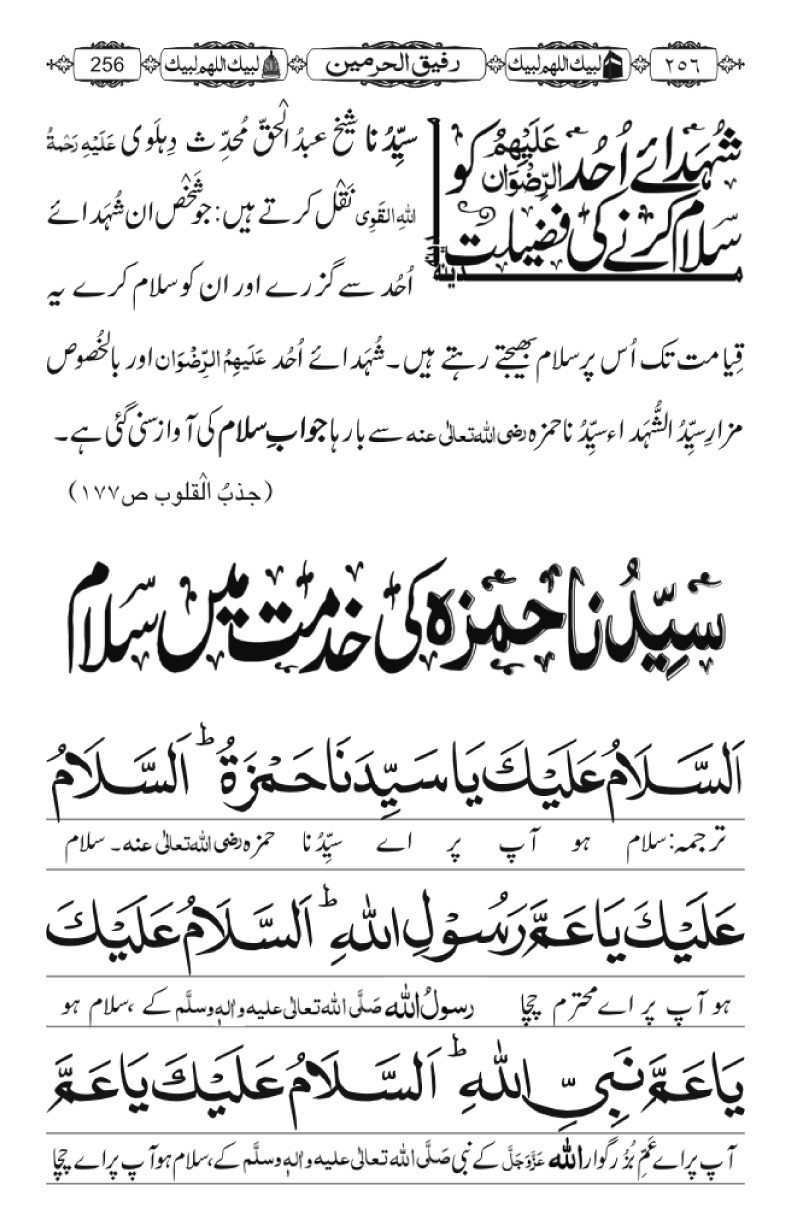 ٢٥٦ لبیک اللھم لبیک رفیق الحرمین لبیک اللھم لبیک 256
شُہَدائے اُحُد عَلَیْہِمُ الرِّضْوَان کو
سلام کرنے کی فضیلت
مدینہ
مدینہ
سیِّدُنا شیخ عبدُ الحقّ مُحدِّث دِہلَوی عَلَیْہِ رَحْمَۃُ
اللہِ القَوِی نَقْل کرتے ہیں: جو شَخْص ان شُہَدائے
اُحُد سے گزرے اور ان کو سلام کرے یہ
قِیامت تک اُس پر سلام بھیجتے رہتے ہیں۔ شُہَدائے اُحُد عَلَیْہِمُ الرِّضْوَان اور بالخُصوص
مزارِ سیِّدُ الشُّہَداء سیِّدُنا حمزہ رضی اللہ تعالیٰ عنہ سے بارہا جوابِ سلام کی آواز سنی گئی ہے۔
(جذبُ القلوب ص۱۷۷)
سیِّدُنا حمزہ کی خدمت میں سلام
اَلسَّلَامُ عَلَیْكَ یَا سَیِّدَنَا حَمْزَةُ ؕ اَلسَّلَامُ
ترجمہ: سلام ہو آپ پر اے سیِّدُنا حمزہ رضی اللہ تعالیٰ عنہ۔ سلام
عَلَیْكَ یَاعَمَّ رَسُوْلِ اللّٰهِ ؕ اَلسَّلَامُ عَلَیْكَ
ہو آپ پر اے محترم چچا رسولُ اللہ صَلَّی اللہ تعالیٰ علیہ واٰلہٖ وسلَّم کے، سلام ہو
یَاعَمَّ نَبِیِّ اللّٰهِ ؕ اَلسَّلَامُ عَلَیْكَ یَاعَمَّ
آپ پر اے عَمِّ بُزُرگوار اللہ عَزَّوَجَلَّ کے نبی صَلَّی اللہ تعالیٰ علیہ واٰلہٖ وسلَّم کے، سلام ہو آپ پر اے چچا